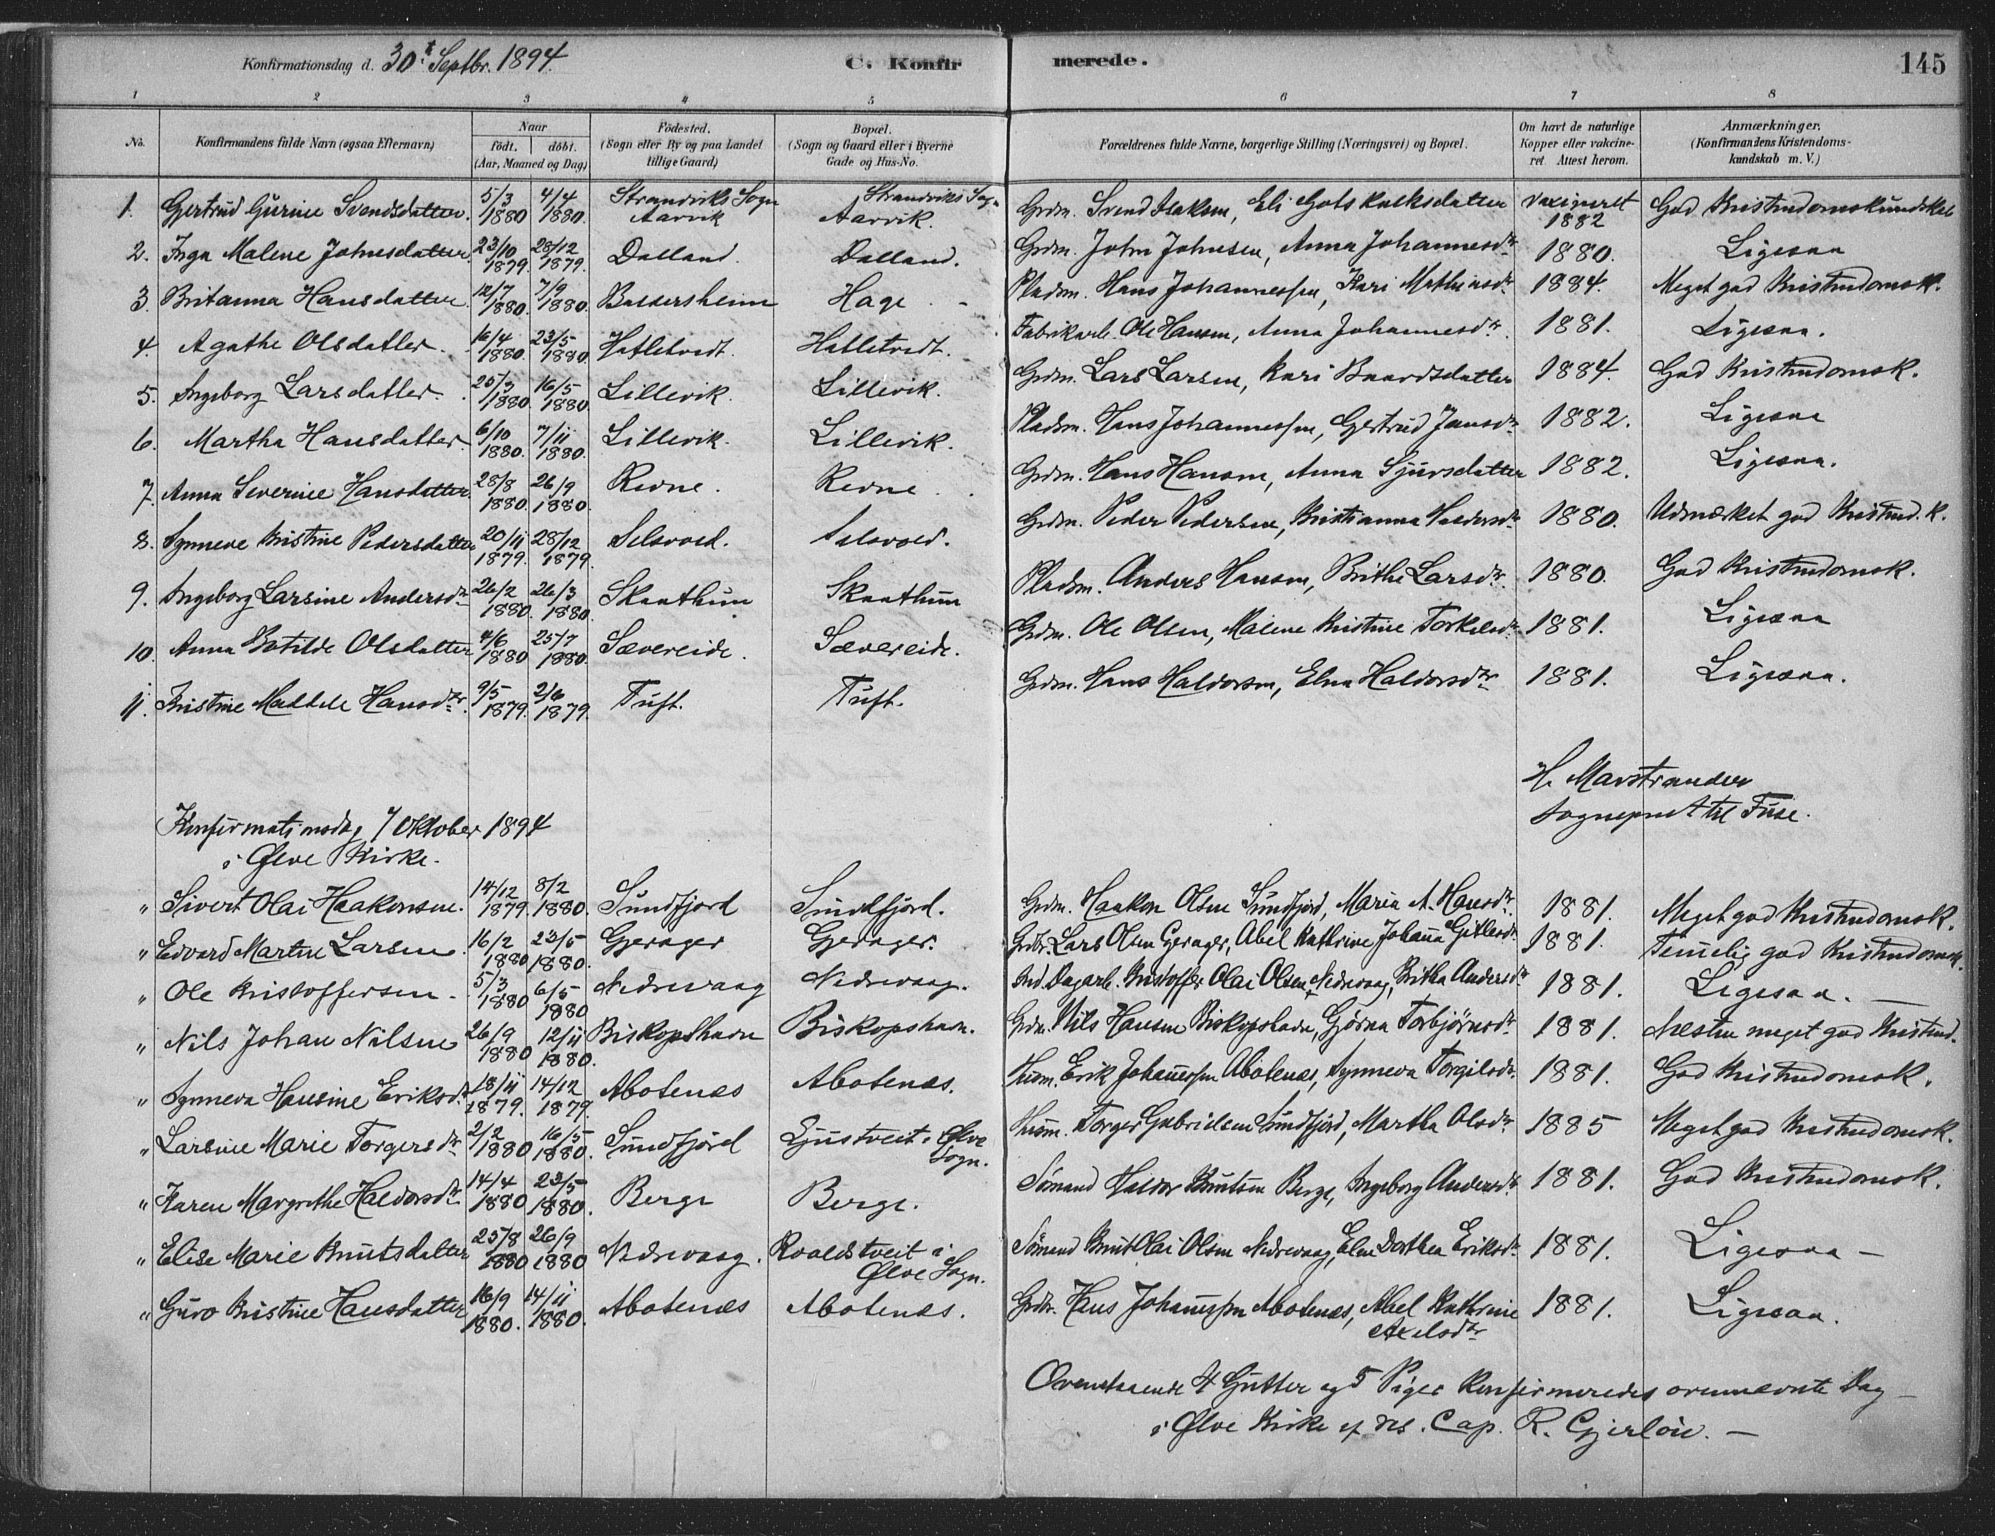 Konfirmationsdag d. 30t Septbr. 1894. C. Konfirmerede. 145
1 2 3 4 5 6 7 8
No. Konfirmandens fulde Navn (ogsaa Efternavn) Naar født. døbt. (Aar, Maaned og Dag) Fødested. (Sogn eller By og paa Landet tillige Gaard) Bopæl. (Sogn og Gaard eller i Byerne Gade og Hus-No. Forældrenes fulde Navne, borgerlige Stilling (Næringsvei) og Bopæl. Om havt de naturlige Kopper eller vakcineret. Attest herom. Anmærkninger. (Konfirmandens Kristendomskundskab m. V.)
1. Gjertrud Gurine Svendsdatter. 5/3 1880 4/4 1880. Strandviks Sogn Aarvik Strandviks Sogn Aarvik. Grdm. Svend Isaksen, Eli Gotskalksdatter vaxineret 1882 God Kristendomskundskab
2. Inga Malene Johnsdatter. 23/10 1879. 28/12 1879. Dalland. Dalland. Grdm. John Johnsen, Anna Johannesdtr 1880. Ligesaa
3. Britanna Hansdatter. 12/7 1880. 7/9 1880. Baldersheim Hage Pladsm. Hans Johannessen, Kari Mathiasdtr 1884. Meget god Kristendomsk.
4. Agathe Olsdatter. 16/4 1880. 23/5 1880. Hatletvedt. Hatletvedt. Fabrikarb. Ole Hansen, Anna Johannesdtr. 1881. Ligesaa.
5. Ingeborg Larsdatter. 25/3 1880. 16/5 1880. Lillevik. Lillevik. Grdm. Lars Larsen, Kari Baardsdatter 1884. God Kristendomsk.
6. Martha Hansdatter. 6/10 1880. 7/11 1880. Lillevik. Lillevik. Pladsm. Hans Johannessen, Gjertrud Jansdtr 1882. Ligesaa
7. Anna Severine Hansdatter 28/8 1880. 26/9 1880. Revne. Revne Grdm. Hans Hansen, Anna Sjursdatter 1882. Ligesaa.
8. Synneve Kristine Pedersdatter 20/11 1879. 28/12 1879. Selsvold. Selsvold. Grdm. Peder Pedersen, Kristianna Haldorsdtr 1880. Udmærket god Kristend. K.
9. Ingeborg Larsine Andersdtr 26/2 1880. 26/3 1880. Skaathun Skaathun Pladsm. Anders Hansen, Brithe Larsdtr. 1880. God Kristendomsk.
10. Anna Botilde Olsdatter 4/6 1880 25/7 1880. Sævereide. Sævereide. Grdm. Ole Olsen, Malene Kristine Torkelsdtr. 1881. Ligesaa
11. Kristine Mathilde Hansdtr. 9/5 1879. 2/6 1879. Tuft. Tuft. Grdm. Hans Haldorsen, Elna Haldorsdtr 1881. Ligesaa.
H. Marstrander
Sogneprest til Fuse.
Konfirmationsdag 7 Oktober 1894
i Ølve Kirke.
" Sivert Olai Haakonsen. 14/12 1879. 8/2 1880. Sundfjord Sundfjord. Grdm. Haakon Olsen Sundfjord, Maria A. Hansdtr. 1881. Meget god Kristendomsk.
" Edvard Martin Larsen. 16/2 1880 23/5 1880. Gjerager Gjerager. Grdbr. Lars Olsen Gjerager, Abel Kathrine Johanna Gitlesdtr 1881. Temelig god Kristendomsk.
" Ole Kristoffersen. 5/3 1880 6/5 1880 Nedrevaag Nedrevaag. Ind. Dagarb. Kristoffer Olai Olsen Nedrevaag, Britha Andersdtr 1881. Ligesaa. —
" Nils Johan Nilsen 26/9 1880 12/11 1880. Biskopshavn Biskopshavn. Grdm. Nils Hansen Biskopshavn, Gjørna Torbjørnsdtr 1881. Næsten meget god Kristend.
" Synneva Hansine Eriksdtr 18/11 1879. 14/12 1879. Abotenæs Abotenæs. Husm. Erik Johannessen Abotenæs, Synneva Torgilsdtr. 1881. God Kristendomsk.
" Larsine Marie Torgersdtr 2/2 1880 16/5 1880. Sundfjord Ljustveit i Ølve Sogn. Husm. Torger Gabrielsen Sundfjord, Martha Olsdtr 1885 Meget god Kristendomsk.
" Karen Margrethe Haldorsdtr 14/4 1880 23/5 1880. Berge Berge. Sømand Haldor Knutsen Berge, Ingeborg Andersdtr 1881. God Kristendomsk.
" Elise Marie Knutsdatter 25/8 1880 26/9 1880 Nedrevaag. Roaldstveit i Ølve Sogn. Sømand Knut Olai Olsen Nedrevaag, Elen Dorthea Eriksdtr 1881. Ligesaa —
" Guro Kristine Hansdatter 16/9 1880. 14/11 1880. Abotenæs Abotenæs. Grdbr. Hans Johannessen Abotenæs, Abel Kathrine Axelsdtr 1881. Ligesaa.
Ovenstaaende 4 Gutter og 5 Piger Konfirmeredes ovennævnte Dag —
i Ølve Kirke af res. Cap. R. Gjerløw. —